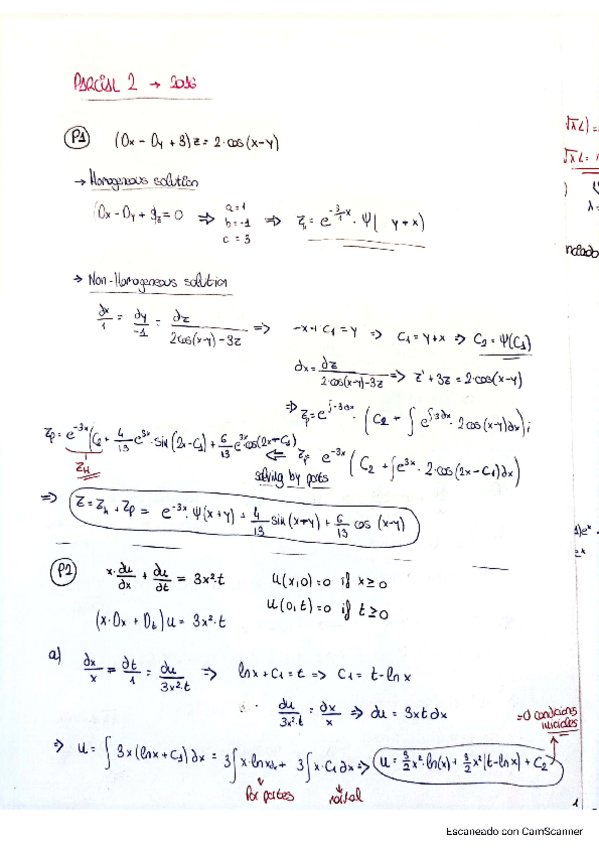 PARCIAL 2 → 2016
P1 (Dx - Dy + 3) z = 2·cos(x-y)
→ Homogeneous solution
Dx - Dy + 3z = 0 ⇒ a = 1 b = -1 c = 3 ⇒ z_h = e^{-3/1 x} · Ψ( y+x)
→ Non-Homogeneous solution
∂x/1 = ∂y/-1 = ∂z/(2cos(x-y)-3z) ⇒ -x+C1 = y ⇒ C1 = y+x ⇒ C2 = Ψ(C1)
∂x = ∂z/(2·cos(x-y)-3z) ⇒ z' + 3z = 2·cos(x-y)
⇒ z_p = e^{∫-3∂x} · (C2 + ∫ e^{∫3∂x} · 2cos(x-y)∂x);
z_p = e^{-3x} (C2 + 4/13 e^{3x} · sin(2x-C1) + 6/13 e^{3x} cos(2x-C1) ⇐ z_p e^{-3x} (C2 + ∫e^{3x} · 2·cos(2x-C1)∂x)
z_H
solving by parts
⇒ z = z_h + z_p = e^{-3x} · Ψ(x+y) + 4/13 sin(x-y) + 6/13 cos (x-y)
P2 x·∂u/∂x + ∂u/∂t = 3x²·t u(x,0) = 0 if x ≥ 0
u(0,t) = 0 if t ≥ 0
(x·Dx + Dt) u = 3x²·t
a) ∂x/x = ∂t/1 = ∂u/3x²·t ⇒ lnx + C1 = t ⇒ C1 = t - lnx
∂u/3x²·t = ∂x/x ⇒ ∂u = 3xt∂x
=0 condicions iniciales
⇒ u = ∫ 3x(lnx + C1)∂x = 3∫x·lnx + 3∫x·C1∂x ⇒ u = 3/2 x²·ln(x) + 3/2 x²(t-lnx) + C2
Por partes
1
Escaneado con CamScanner